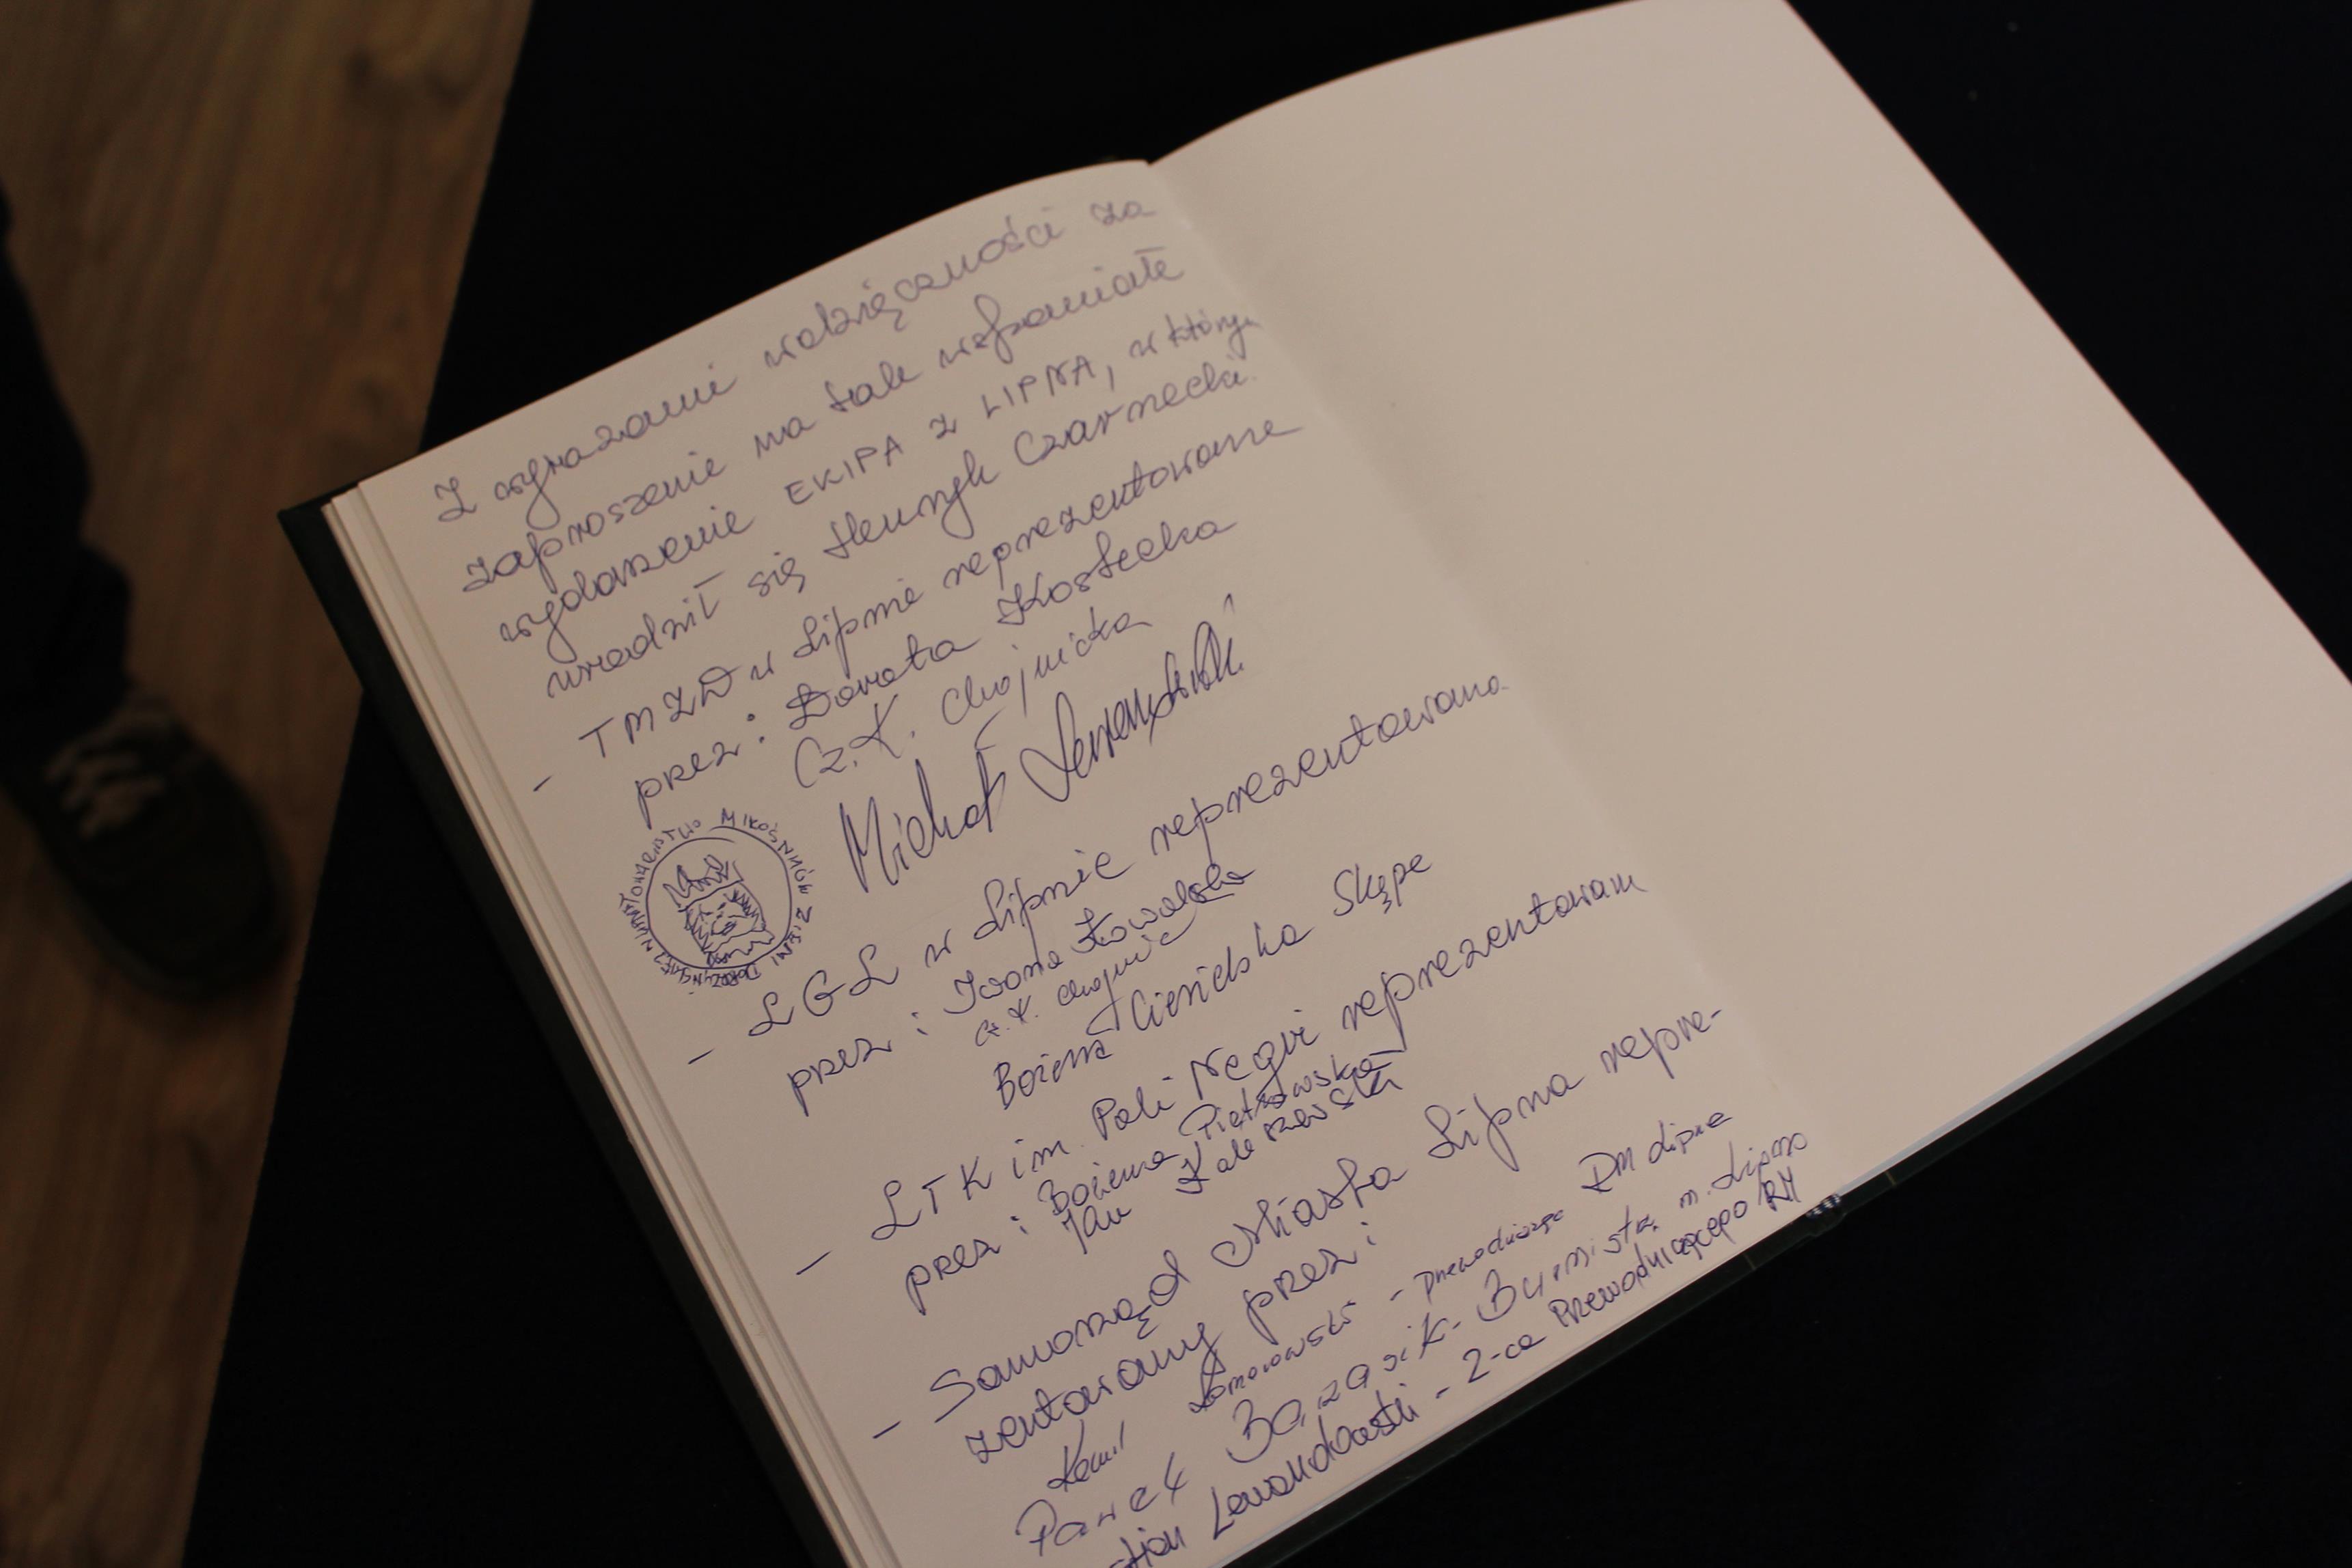 Z wyrazami wdzięczności za
zaproszenie na takie wspaniałe
wydarzenie EKIPA Z LIPNA, w którym
urodził się Henryk Czarnecki.
- TMZD w Lipnie reprezentowane
przez: Dorota Kostecka
Cz. K. Chojnicka
Michał
TOWARZYSTWO MIŁOŚNIKÓW ZIEMI DOBRZYŃSKIEJ
- LGL w Lipnie reprezentowana
przez: Iwona Kowalska
Cz. K. Chojnicka
Bożena Ciesielska Skępe
- LTK im. Poli Negri reprezentowani
przez: Bożena Pietrzowska
Jan
- Samorząd Miasta Lipna repre-
zentowany przez:
Kamil Komorowski - Przewodniczący RM Lipna
Paweł Banasik - Burmistrz m. Lipna
Lewandowski - Z-ca Przewodniczącego RM